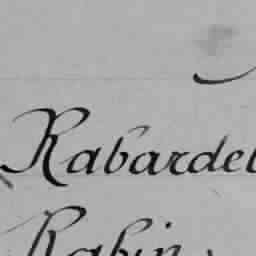 Rabardel
Rabin